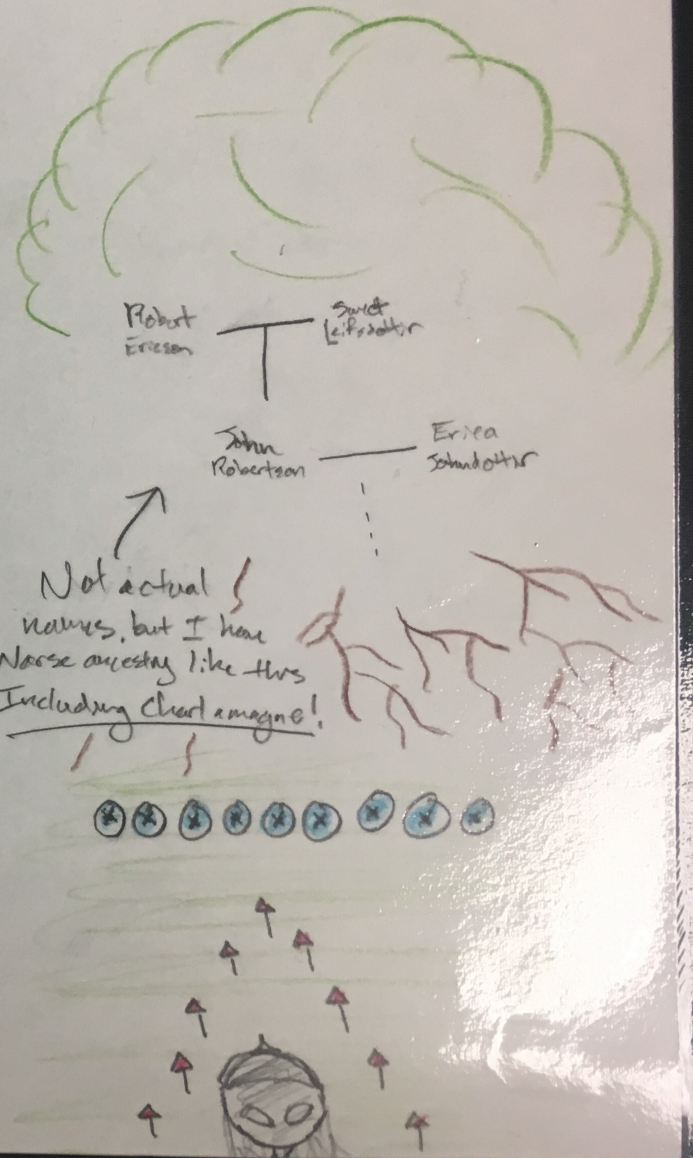 Robert
Ericson
Leifsdottir
John
Robertson
Erica
Johndottir
Not actual
names, but I have
Norse ancestry like this
Including Charlamagne!